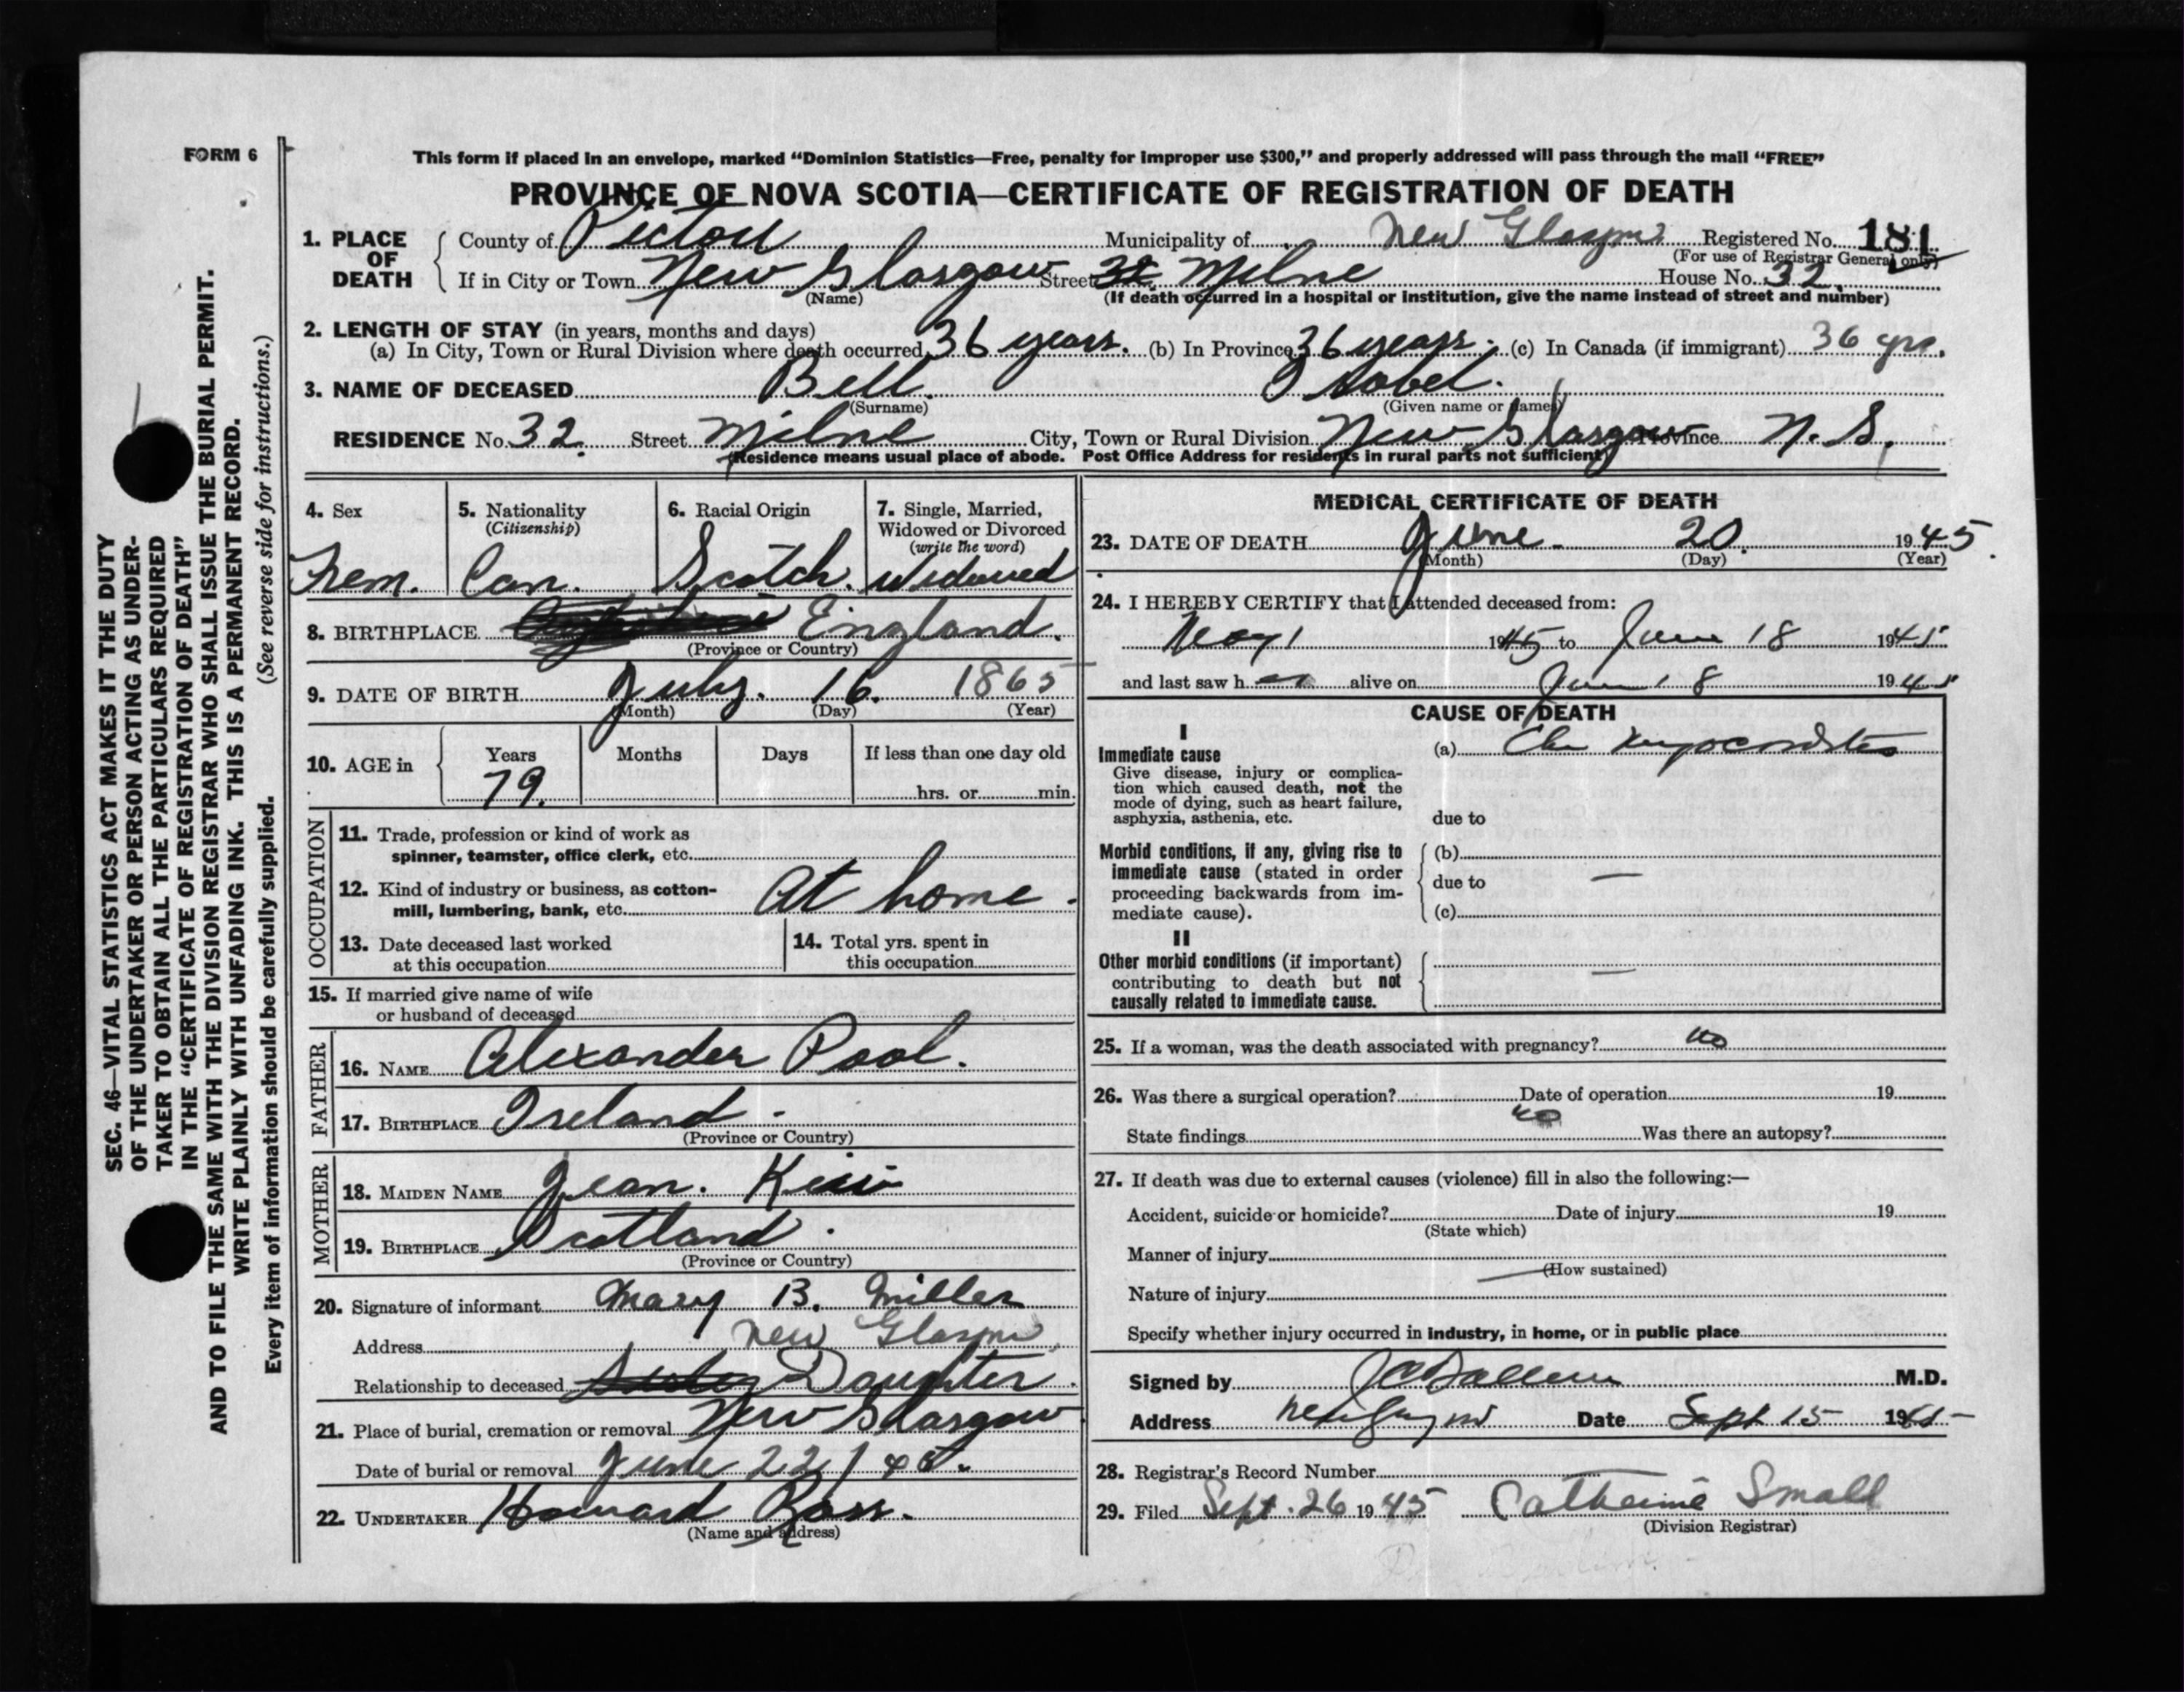 FORM 6
This form if placed in an envelope, marked “Dominion Statistics—Free, penalty for improper use $300,” and properly addressed will pass through the mail “FREE”
PROVINCE OF NOVA SCOTIA—CERTIFICATE OF REGISTRATION OF DEATH
1. PLACE OF DEATH County of Pictou Municipality of New Glasgow Registered No. 181
(For use of Registrar General only)
If in City or Town New Glasgow Street 32 Milne House No. 32
(Name) (If death occurred in a hospital or institution, give the name instead of street and number)
2. LENGTH OF STAY (in years, months and days)
(a) In City, Town or Rural Division where death occurred 36 years. (b) In Province 36 years. (c) In Canada (if immigrant) 36 yrs.
3. NAME OF DECEASED Bell. Isobel.
(Surname) (Given name or names)
RESIDENCE No. 32. Street Milne City, Town or Rural Division New Glasgow Province N.S.
(Residence means usual place of abode. Post Office Address for residents in rural parts not sufficient)
4. Sex 5. Nationality (Citizenship) 6. Racial Origin 7. Single, Married, Widowed or Divorced (write the word)
Fem. Can. Scotch. Widowed
8. BIRTHPLACE England.
(Province or Country)
9. DATE OF BIRTH July. 16. 1865
(Month) (Day) (Year)
10. AGE in Years Months Days If less than one day old
79. hrs. or min.
OCCUPATION
11. Trade, profession or kind of work as
spinner, teamster, office clerk, etc.
12. Kind of industry or business, as cotton-
mill, lumbering, bank, etc. At home.
13. Date deceased last worked
at this occupation
14. Total yrs. spent in
this occupation
15. If married give name of wife
or husband of deceased
FATHER
16. NAME Alexander Pool.
17. BIRTHPLACE Ireland.
(Province or Country)
MOTHER
18. MAIDEN NAME Jean.
19. BIRTHPLACE Scotland.
(Province or Country)
20. Signature of informant Mary B. Miller
Address New Glasgow
Relationship to deceased Sister Daughter.
21. Place of burial, cremation or removal New Glasgow
Date of burial or removal June 22/45.
22. UNDERTAKER Howard Ross.
(Name and address)
MEDICAL CERTIFICATE OF DEATH
23. DATE OF DEATH June 20. 1945.
(Month) (Day) (Year)
24. I HEREBY CERTIFY that I attended deceased from:
May 1 1945 to June 18 1945
and last saw her alive on June 18 1945
CAUSE OF DEATH
I
Immediate cause (a) myocarditis
Give disease, injury or complica-
tion which caused death, not the
mode of dying, such as heart failure,
asphyxia, asthenia, etc. due to
Morbid conditions, if any, giving rise to (b)
immediate cause (stated in order
proceeding backwards from im- due to —
mediate cause). (c)
II
Other morbid conditions (if important)
contributing to death but not —
causally related to immediate cause.
25. If a woman, was the death associated with pregnancy? no
26. Was there a surgical operation? no Date of operation 19
State findings Was there an autopsy?
27. If death was due to external causes (violence) fill in also the following:—
Accident, suicide or homicide? Date of injury 19
(State which)
Manner of injury
(How sustained)
Nature of injury
Specify whether injury occurred in industry, in home, or in public place
Signed by M.D.
Address New Glasgow Date Sept 15 1945
28. Registrar's Record Number
29. Filed Sept. 26 1945 Catherine Small
(Division Registrar)
SEC. 46—VITAL STATISTICS ACT MAKES IT THE DUTY
OF THE UNDERTAKER OR PERSON ACTING AS UNDER-
TAKER TO OBTAIN ALL THE PARTICULARS REQUIRED
IN THE “CERTIFICATE OF REGISTRATION OF DEATH”
AND TO FILE THE SAME WITH THE DIVISION REGISTRAR WHO SHALL ISSUE THE BURIAL PERMIT.
WRITE PLAINLY WITH UNFADING INK. THIS IS A PERMANENT RECORD.
Every item of information should be carefully supplied. (See reverse side for instructions.)